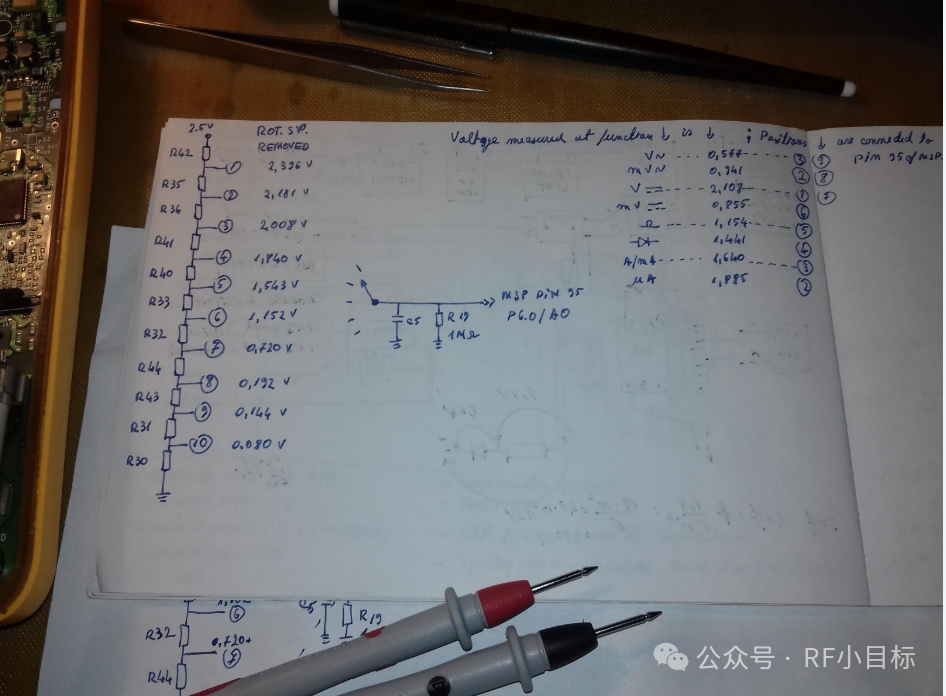 2.5V
ROT. SW.
REMOVED
R42
① 2,336 V
R35
② 2,181 V
R36
③ 2,008 V
R41
④ 1,840 V
R40
⑤ 1,543 V
R33
⑥ 1,152 V
R32
⑦ 0,720 V
R44
⑧ 0,192 V
R43
⑨ 0,144 V
R31
⑩ 0,080 V
R30
Voltage measured at function ↓ is ↓ ; Positions ↓ are connected to
pin 95 of MSP.
V~ 0,577 ③ ⑨
mV~ 0,341 ② ⑧
V⎓ 2,108 ① ⑦
mV⎓ 0,855 ⑥
Ω 1,154 ⑤
1,441 ④
A/mA 1,640 ③
µA 1,885 ②
MSP pin 95
P6.0/A0
C5
R19
1MΩ
⑥
R32
0,720
⑦
R44
C5
R19
公众号 · RF小目标